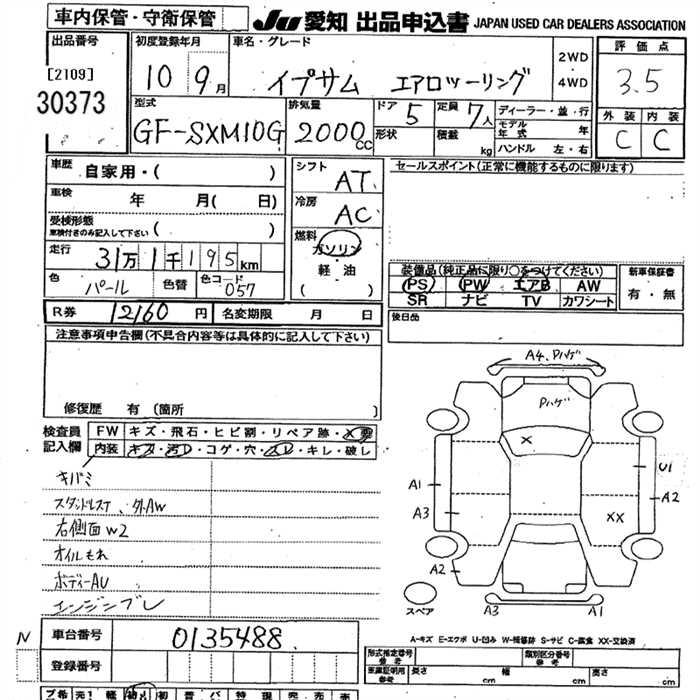 車内保管・守衛保管
JU 愛知 出品申込書 JAPAN USED CAR DEALERS ASSOCIATION
出品番号 初度登録年月 車名・グレード 2WD・4WD 評価点
[2109] 10 9月 イプサム エアロツーリング 3.5
30373
型式 排気量 ドア 5 定員 7人 ディーラー・並・行 外装 内装
GF-SXM10G 2000cc 形状 積載 kg モデル年式 年 C C
ハンドル 左・右
車歴 自家用・( ) シフト AT セールスポイント(正常に機能するものに限ります)
車検 年 月( 日) 冷房 AC
受検形態 車検付きのみ記入して下さい ( )
走行 31万1千195km 燃料 ガソリン 軽・油 ( )
装備品(純正品に限り○をつけてください) 新車保証書
色 パール 色替 色コード 057 PS PW エアB AW 有・無
SR ナビ TV カワシート
R券 12160円 名変期限 月 日 後日品
注意事項申告欄(不具合内容等は具体的に記入して下さい)
修復歴 有(箇所 )
検査員記入欄 FW キズ・飛石・ヒビ割・リペア跡・X要
内装 キズ・汚レ・コゲ・穴・スレ・キレ・破レ
キバミ
スタッドレスT、外AW
右側面W2
オイルもれ
ボディーAU
エンジンブレ
A4、Pハゲ
Pハゲ
X
U1
A1
A2
A3
XX
A2
スペア
A3 A1
N 車台番号 0135488
登録番号
A-キズ E-エクボ U-凹み W-補修跡 S-サビ C-腐食 XX-交換済
形式指定番号 参考 類別区分番号 参考
車庫証明用 参考 長さ cm 幅 cm 高さ cm